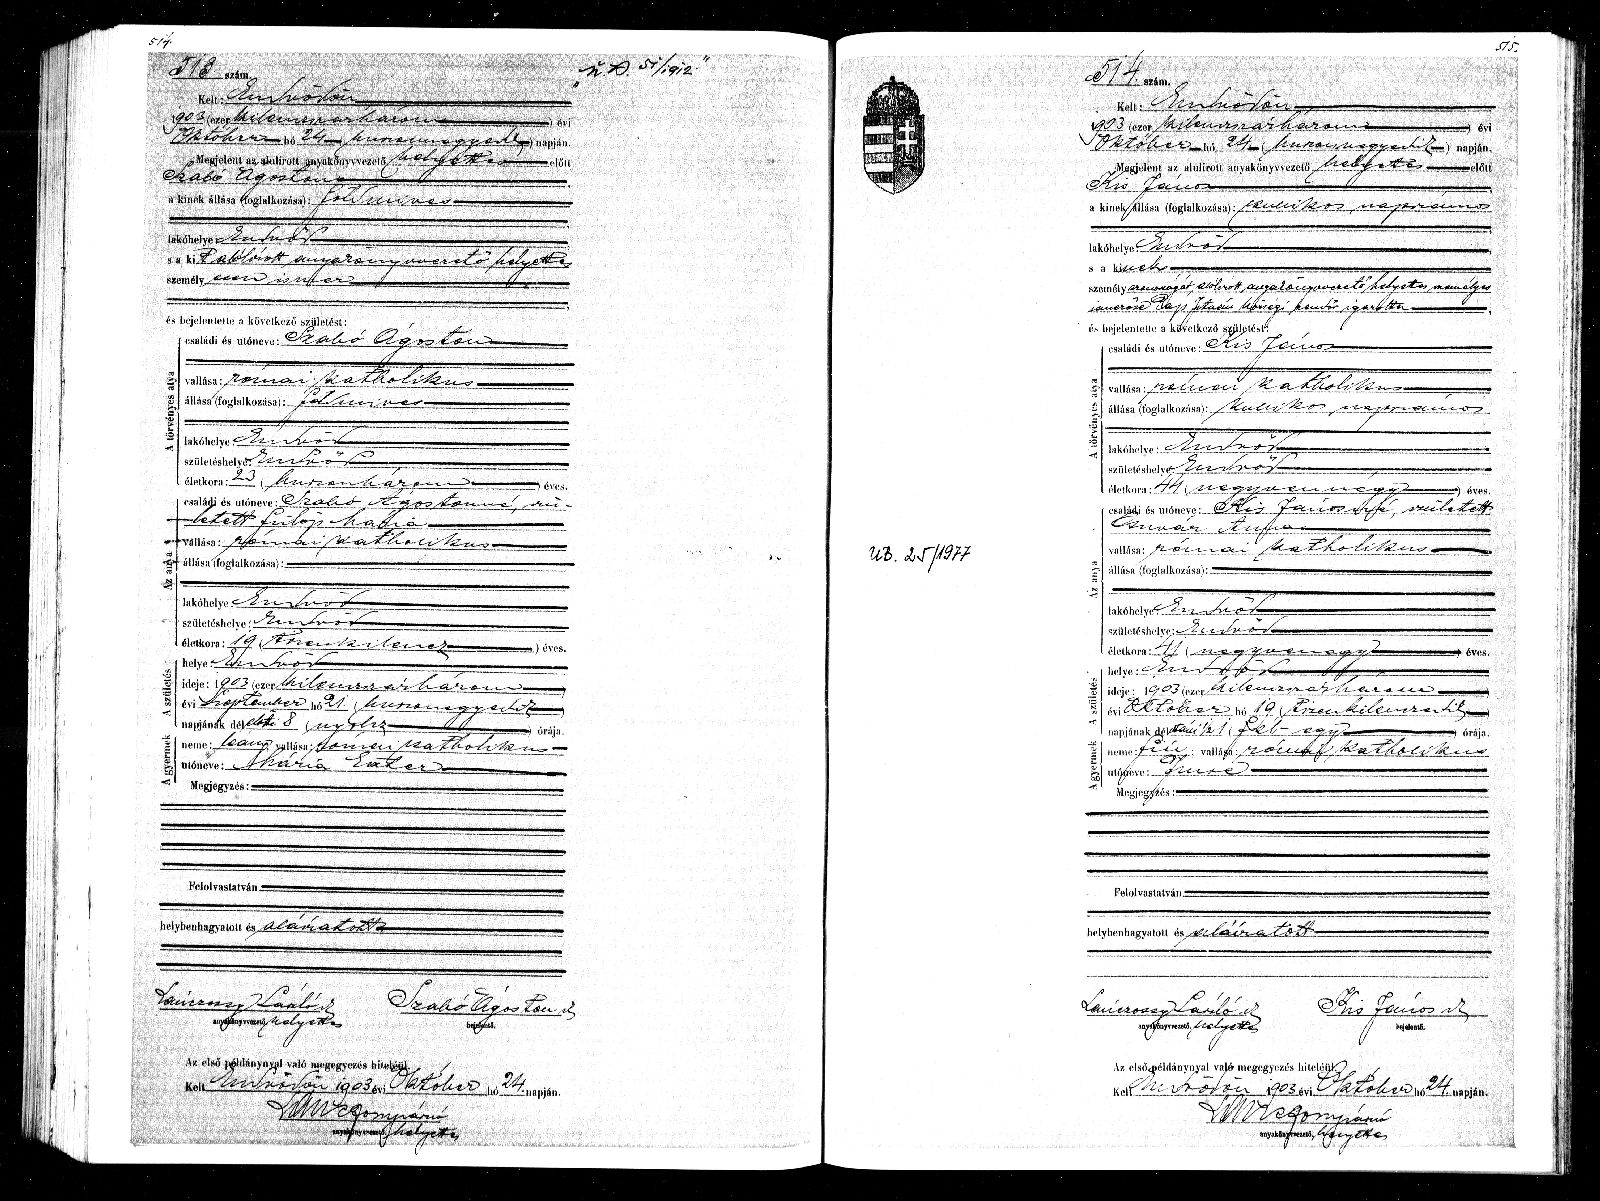 514.
513 szám.
"U. B. 51/1912"
Kelt: Endrődön
1903 (ezer kilenczszázhárom) évi
Október hó 24 (huszonnegyedik) napján.
Megjelent az alulirott anyakönyvvezető helyettes előtt
Szabó Ágoston
a kinek állása (foglalkozása): földmives
lakóhelye Endrőd
s a kit alólirott anyakönyvvezető helyettes
személyesen ismer
és bejelentette a következő születést:
A törvényes atya
családi és utóneve: Szabó Ágoston
vallása: római katholikus
állása (foglalkozása): földmives
lakóhelye Endrőd
születéshelye: Endrőd
életkora: 23 (huszonhárom) éves.
Az anya
családi és utóneve: Szabó Ágostonné, szü-
letett Fülöp Mária
vallása: római katholikus
állása (foglalkozása):
lakóhelye Endrőd
születéshelye: Endrőd
életkora: 19 (tizenkilencz) éves.
A születés
helye: Endrőd
ideje: 1903 (ezer kilenczszázhárom)
évi Szeptember hó 21 (huszonegyedik)
napjának délelőtti 8 (nyolcz) órája.
A gyermek
neme: leány vallása: római katholikus
utóneve: Mária Eszter
Megjegyzés:
Felolvastatván
helybenhagyatott és aláiratott
László Szabó Ágoston
anyakönyvvezető, helyettes bejelentő.
Az első példánynyal való megegyezés hiteléül.
Kelt Endrődön 1903 évi Október hó 24. napján.
anyakönyvvezető, helyettes
515.
514. szám.
Kelt: Endrődön
1903 (ezer kilenczszázhárom) évi
Október hó 24 (huszonnegyedik) napján.
Megjelent az alulirott anyakönyvvezető helyettes előtt
Kis János
a kinek állása (foglalkozása): kubikos napszámos
lakóhelye Endrőd
s a kinek
személyazonosságát, alólirott, anyakönyvvezető, helyettes személyes
ismerőse Pap István községi rendőr igazolta
és bejelentette a következő születést:
A törvényes atya
családi és utóneve: Kis János
vallása: római katholikus
állása (foglalkozása): kubikos napszámos
lakóhelye Endrőd
születéshelye Endrőd
életkora: 44 (negyvennégy) éves.
Az anya
családi és utóneve: Kis Jánosné, született
Anna
vallása: római katholikus
állása (foglalkozása):
UB. 25/1977
lakóhelye Endrőd
születéshelye: Endrőd
életkora: 41 (negyvenegy) éves.
A születés
helye: Endrőd
ideje: 1903 (ezer kilenczszázhárom)
évi Október hó 19 (tizenkilenczedik)
napjának délutáni 1/2 1 (fél egy) órája.
A gyermek
neme: fiú vallása: római katholikus
utóneve: Imre
Megjegyzés:
Felolvastatván
helybenhagyatott és aláiratott
László Kis János
anyakönyvvezető, helyettes bejelentő.
Az első példánynyal való megegyezés hiteléül.
Kelt Endrődön 1903 évi Október hó 24. napján.
anyakönyvvezető, helyettes